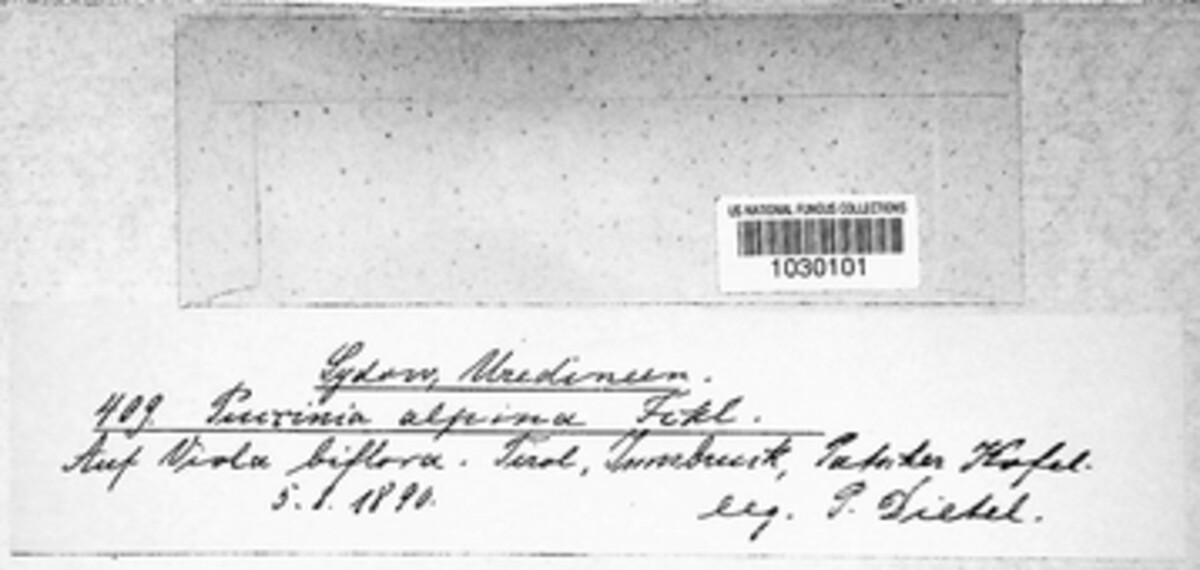 US NATIONAL FUNGUS COLLECTIONS
1030101
Sydow, Uredineen.
409. Puccinia alpina Fckl.
Auf Viola biflora. Tirol, Innsbruck, Patscher Kofel.
5. 1890.
leg. P. Dietel.